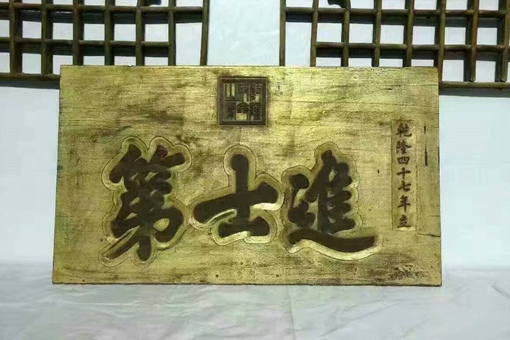 乾隆四十七年立
進士第